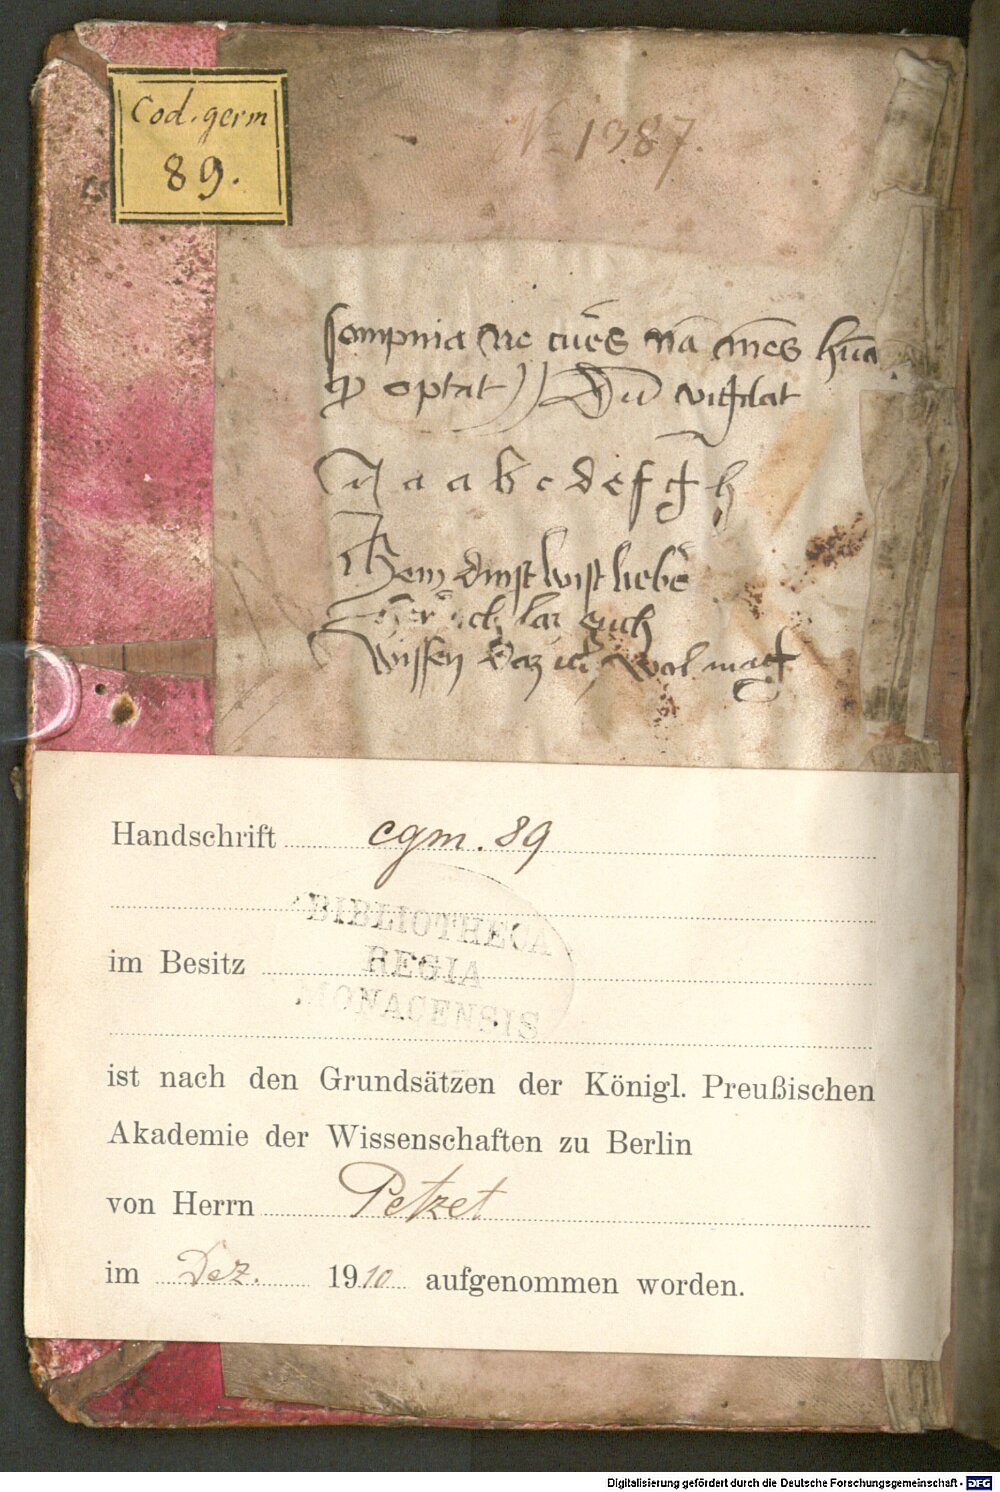 Cod. germ
89.
N 1387.
sompnia ne cures nā mēs hūa
ꝙ optat Dū vigilat
A a a b c d e f g h
Mein dinst wist lieber
her ich laz euch
wissen daz ich wol mag
Handschrift cgm. 89
BIBLIOTHECA
REGIA
MONACENSIS
im Besitz
ist nach den Grundsätzen der Königl. Preußischen
Akademie der Wissenschaften zu Berlin
von Herrn Petzet
im Dez. 1910 aufgenommen worden.
Digitalisierung gefördert durch die Deutsche Forschungsgemeinschaft - DFG